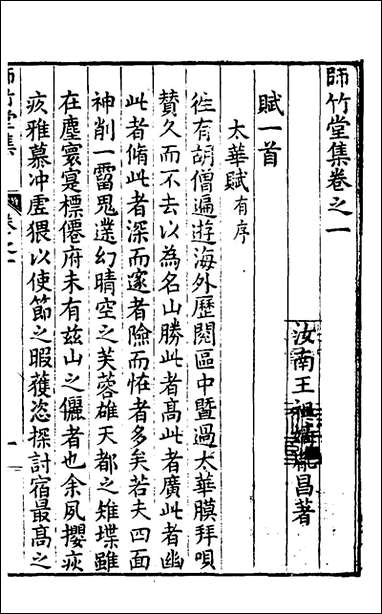 師竹堂集卷之一
汝南王祖嫡胤昌著
賦一首
太華賦有序
徃有胡僧遍遊海外歷閱區中暨過太華膜拜唄
賛久而不去以為名山勝此者髙此者廣此者幽
此者脩此者深而邃者險而恠者多矣若夫四面
神削一雷鬼幻晴空之芙蓉雄天都之雉堞雖
在塵寰寔標僊府未有兹山之儷者也余夙攖痰
疚雅慕冲虛猥以使節之暇獲恣探討宿最髙之
師竹堂集
卷之一
一